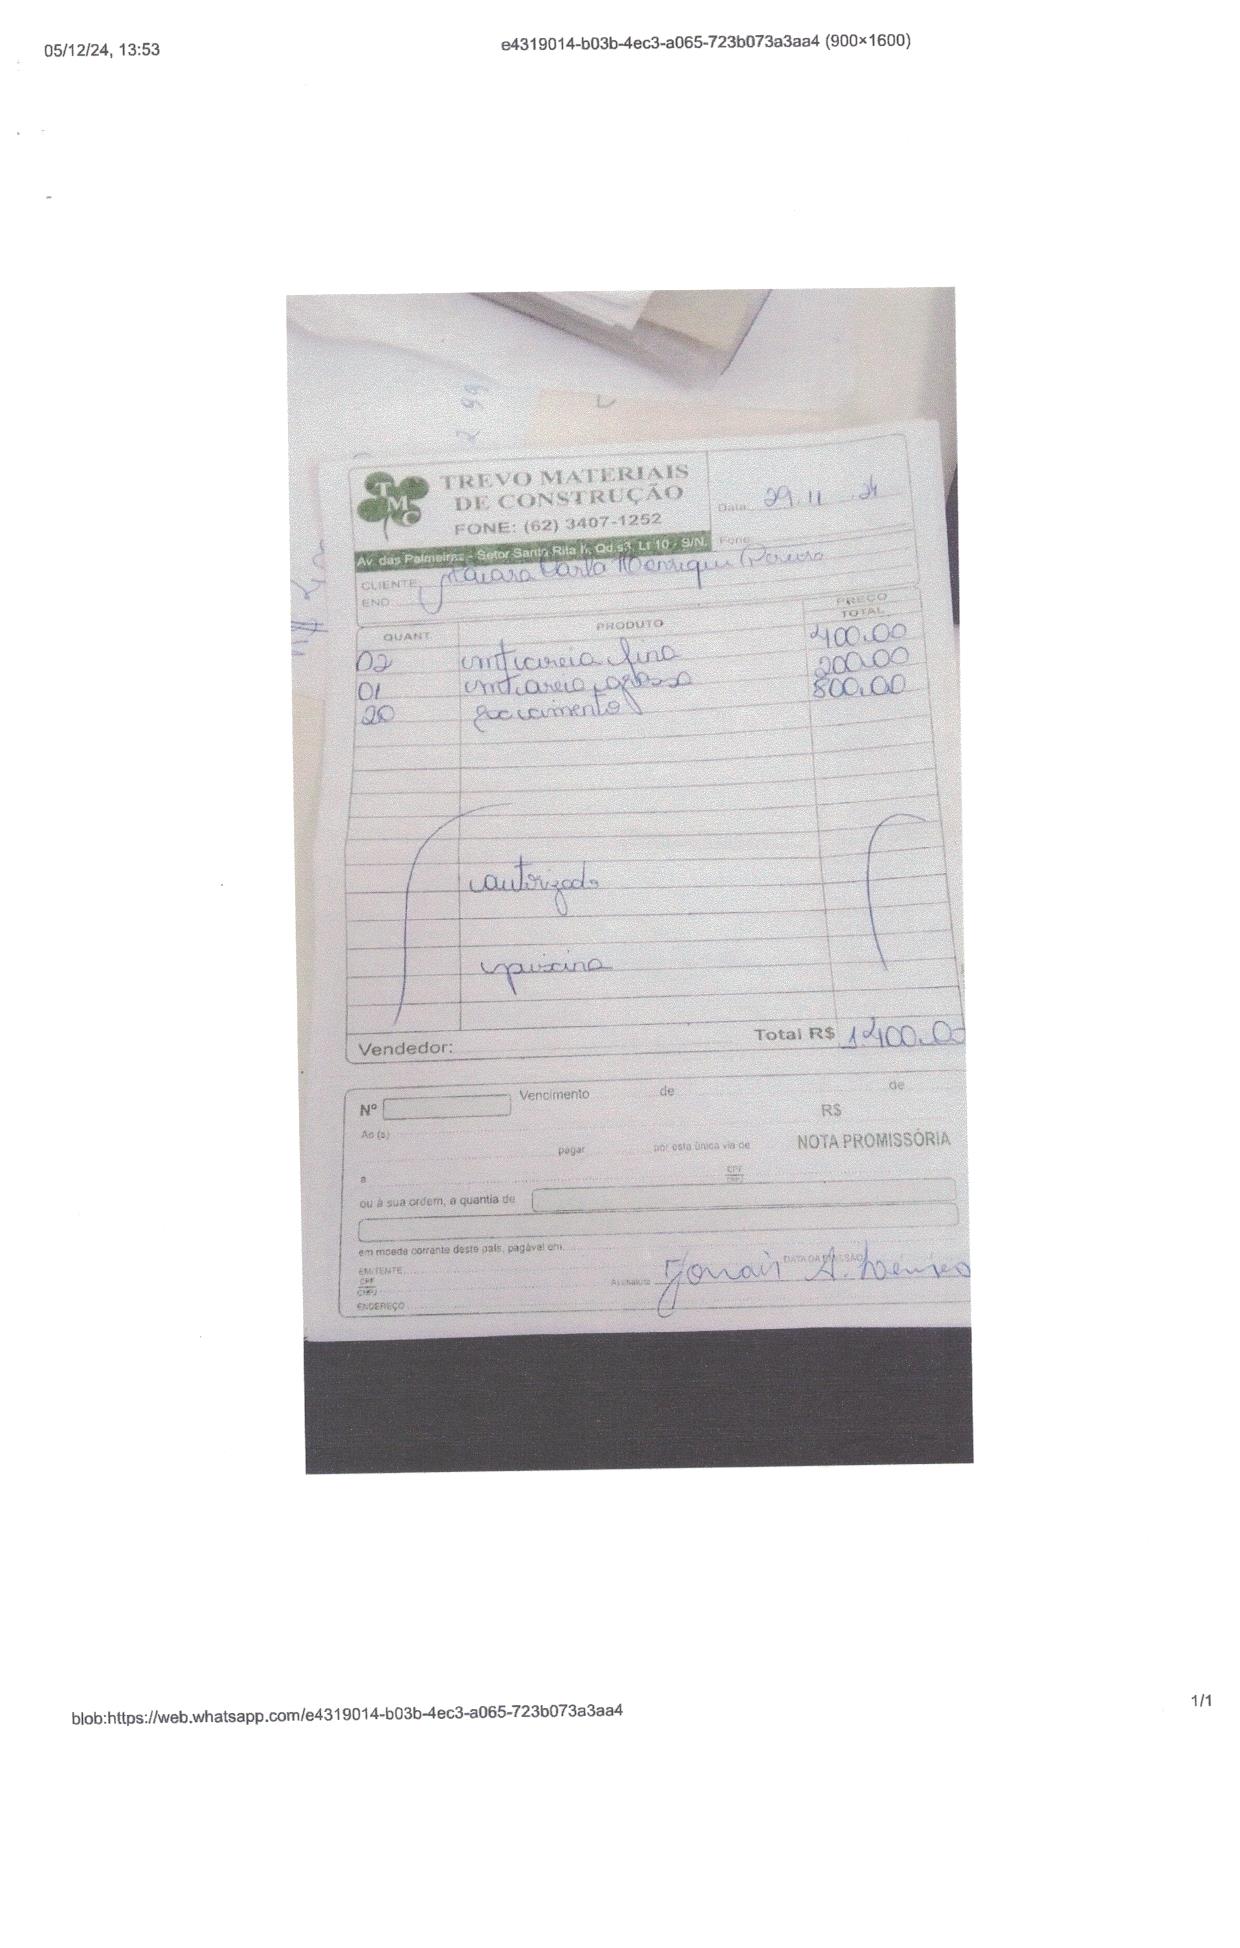 05/12/24, 13:53
e4319014-b03b-4ec3-a065-723b073a3aa4 (900×1600)
2 99
TMC
TREVO MATERIAIS
DE CONSTRUÇÃO
FONE: (62) 3407-1252
Data 29.11.24
Av. das Palmeiras - Setor Santa Rita II, Qd s3, Lt 10 - S/N.
Fone
CLIENTE Carla Henrique Pereira
END
QUANT. PRODUTO PREÇO TOTAL
02 areia fina 400,00
01 areia 200,00
20 cimento 800,00
autorizado
piscina
Vendedor: Total R$ 1.400,00
Nº Vencimento de de
R$
Ao (s)
pagar por esta única via de NOTA PROMISSÓRIA
a CPF
ou à sua ordem, a quantia de
em moeda corrente deste país, pagável em
EMITENTE DATA DA EMISSÃO
CPF
CNPJ
Assinatura Jonair A.
ENDEREÇO
blob:https://web.whatsapp.com/e4319014-b03b-4ec3-a065-723b073a3aa4
1/1